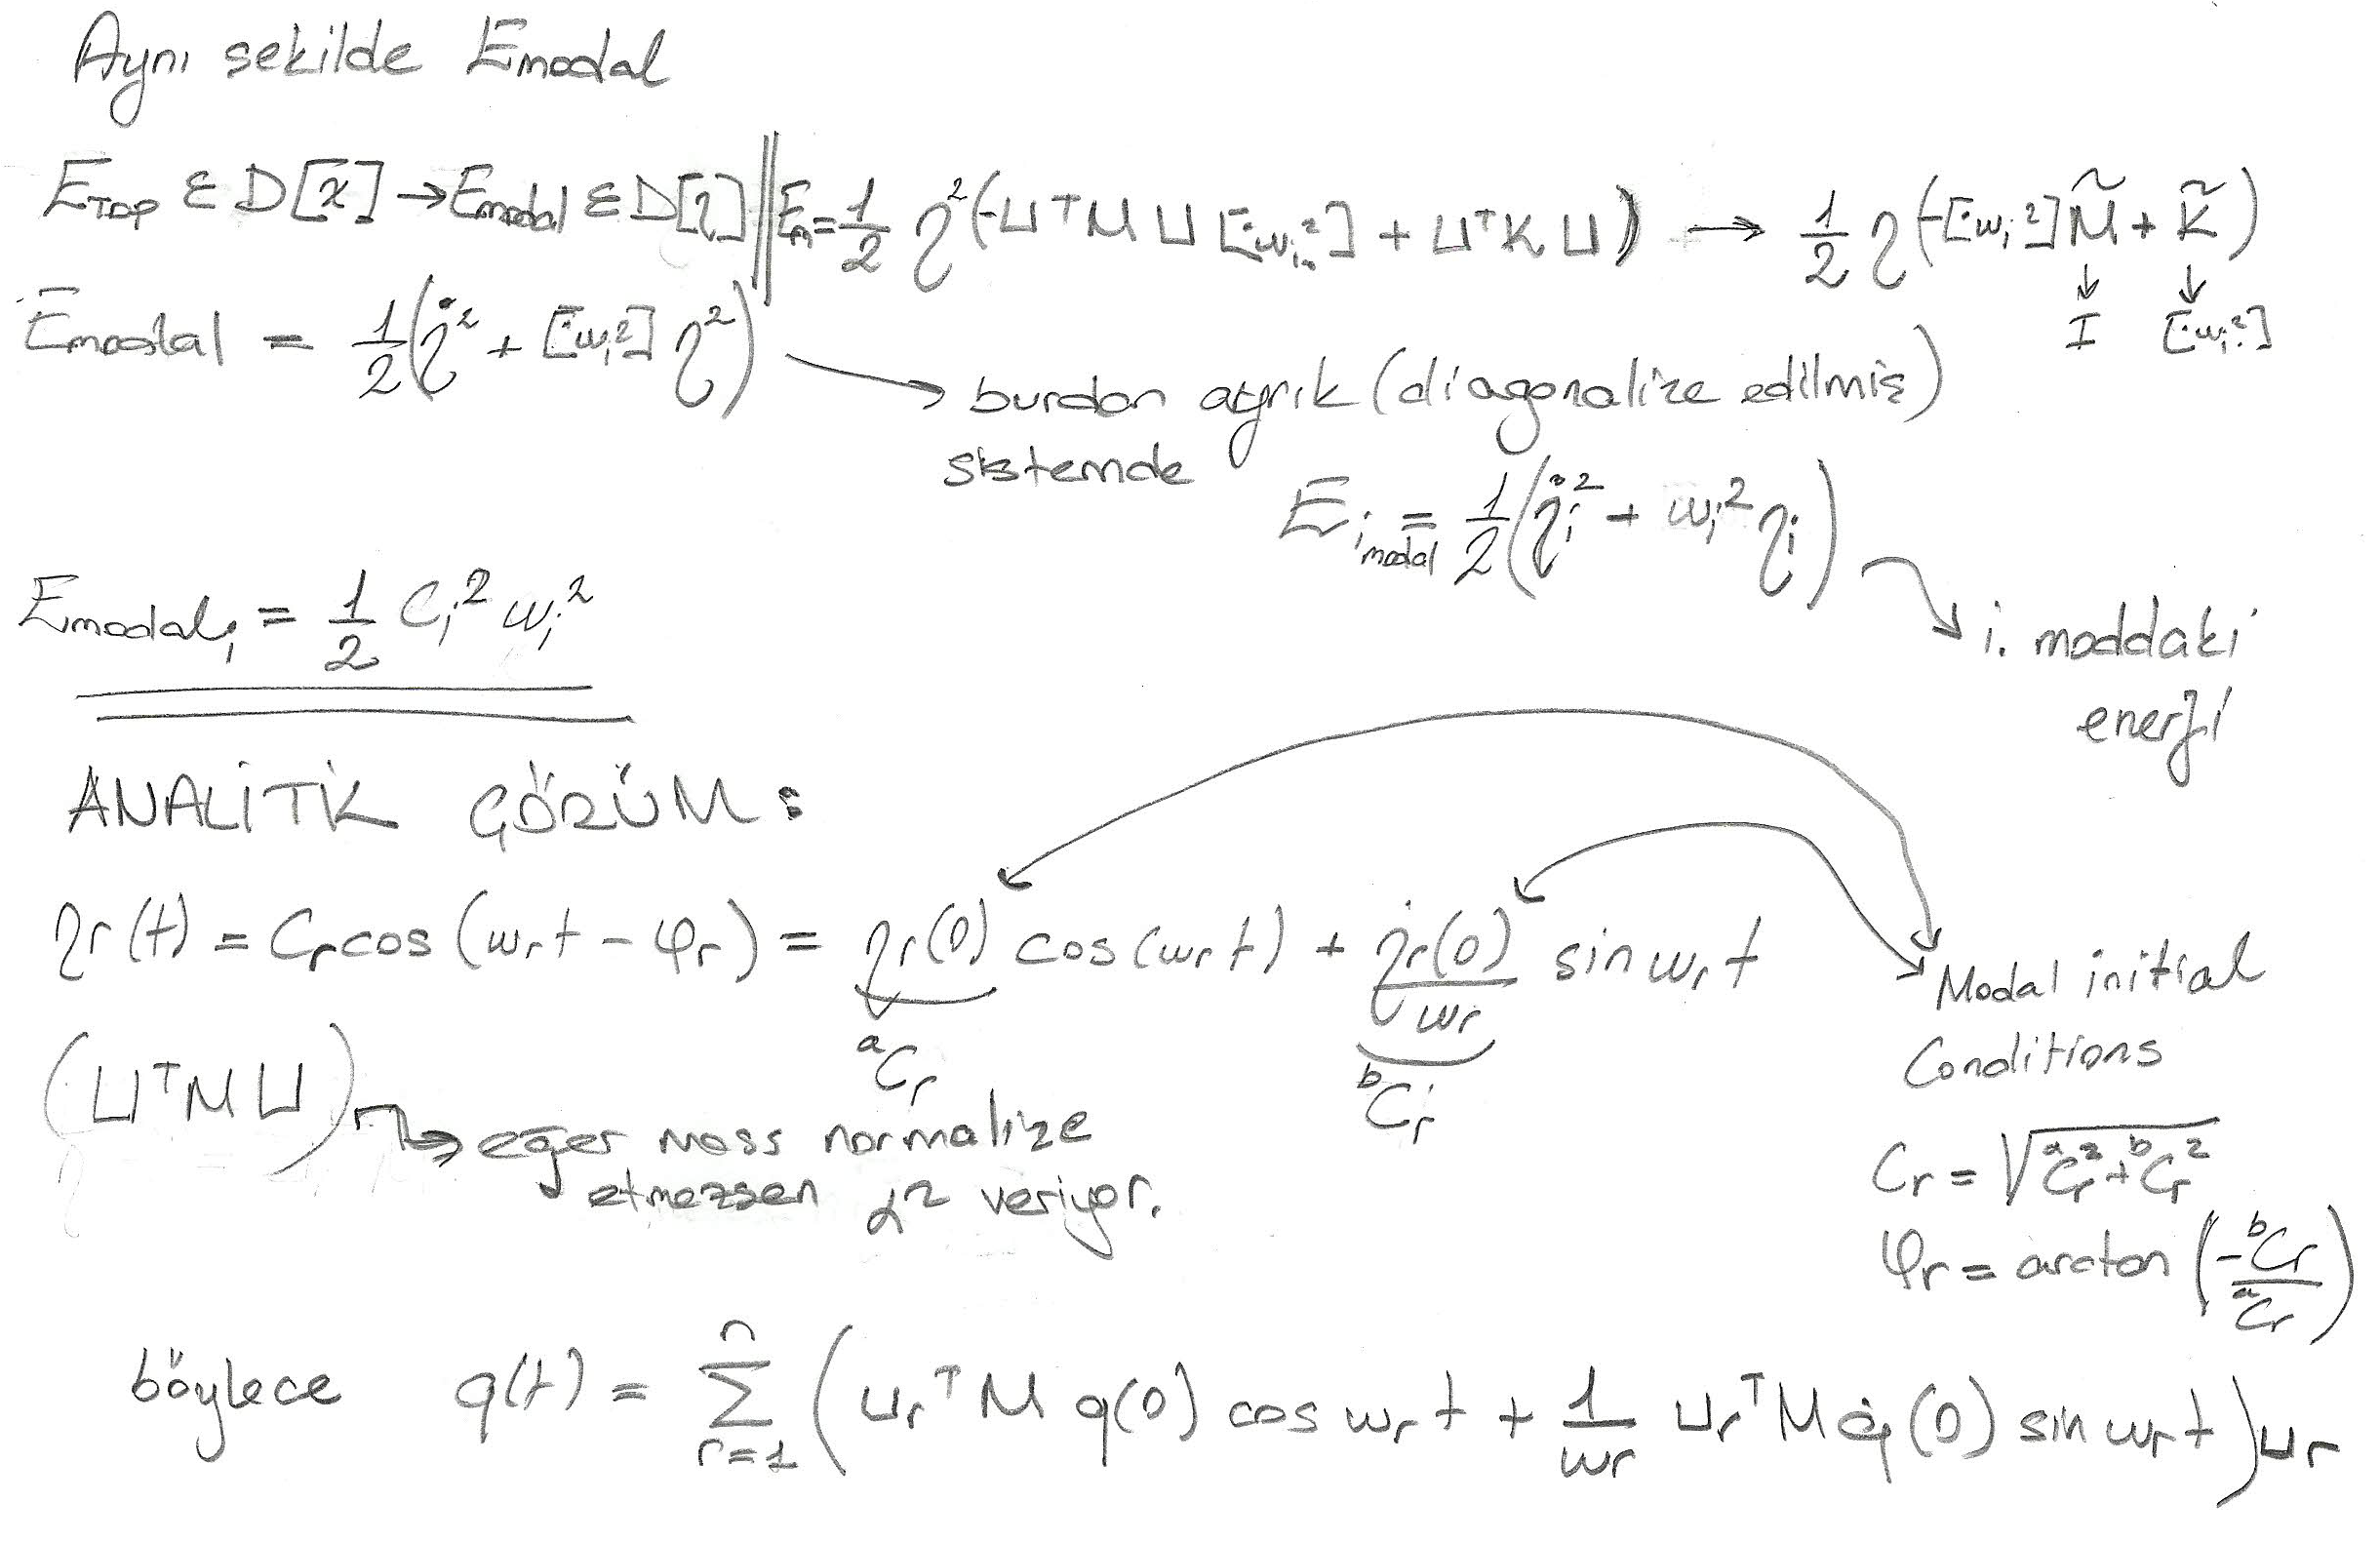 Aynı şekilde Emodal
ETOP ε D[x] → Emodal ε D[η] || Em = 1/2 η²(-UᵀMU[⋱ωi²⋱] + UᵀKU) → 1/2 η(-[ωi²]M̃ + K̃)
↓ ↓
I [⋱ωi²⋱]
Emodal = 1/2(η̇² + [⋱ωi²] η²)
→ burdan ayrık (diagonalize edilmiş)
sistemde
Ei modal = 1/2(η̇i² + ωi² ηi)
→ i. moddaki
enerji
Emodal,i = 1/2 Ci² ωi²
ANALİTİK ÇÖZÜM:
ηr(t) = Cr cos(ωrt - φr) = ηr(0) cos(ωrt) + η̇r(0)/ωr sin ωrt
ᵃCr ᵇCr
Modal initial
Conditions
(UᵀMU) → eğer mass normalize
etmezsen α² veriyor.
Cr = √(ᵃCr² + ᵇCr²)
φr = arctan(-ᵇCr/ᵃCr)
böylece q(t) = Σ r=1 n (urᵀ M q(0) cos ωr t + 1/ωr urᵀ M q̇(0) sin ωr t) ur